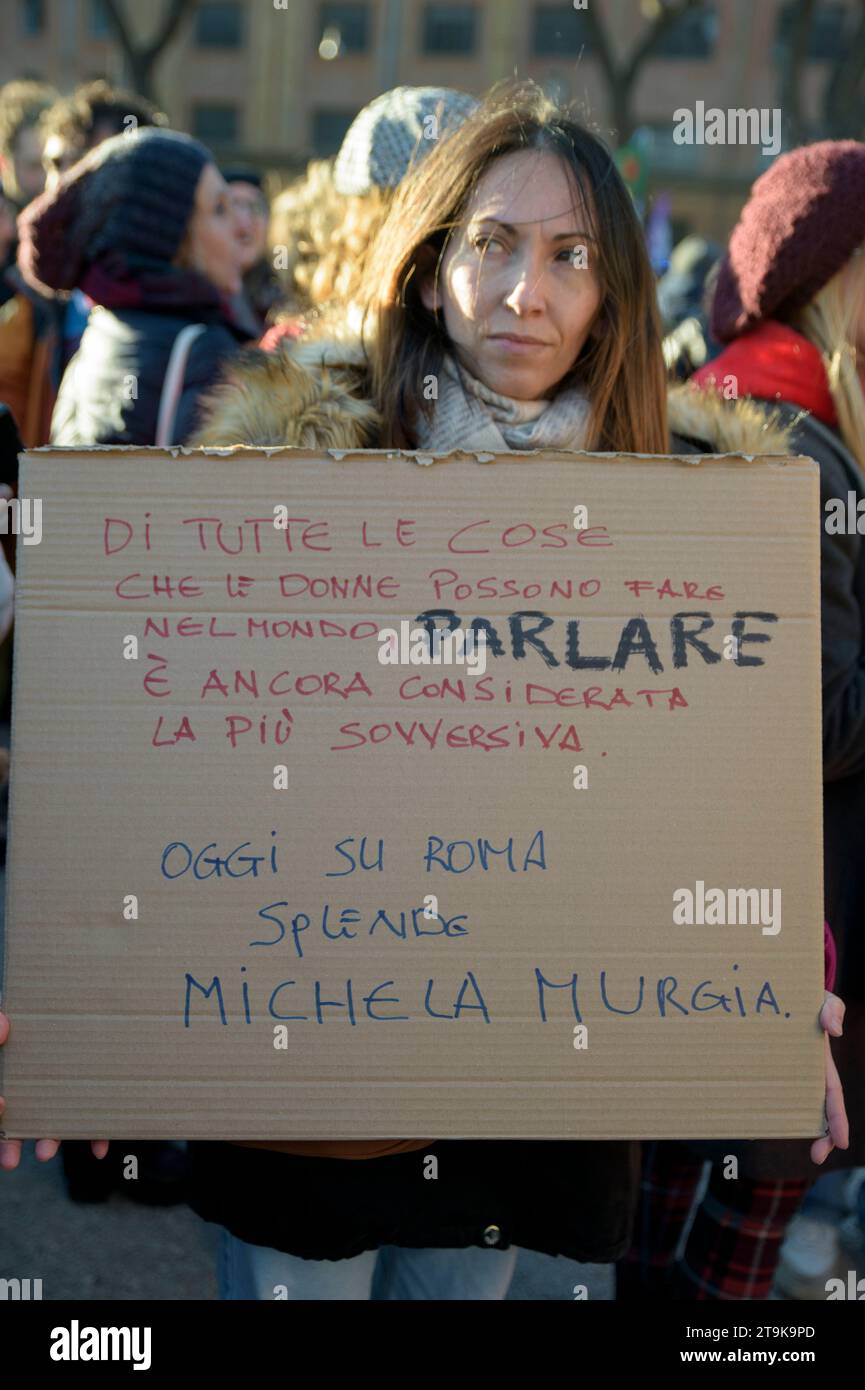 DI TUTTE LE COSE
CHE LE DONNE POSSONO FARE
NEL MONDO, PARLARE
È ANCORA CONSIDERATA
LA PIÙ SOVVERSIVA.
OGGI SU ROMA
SPLENDE
MICHELA MURGIA.
alamy
Image ID: 2T9K9PD
www.alamy.com